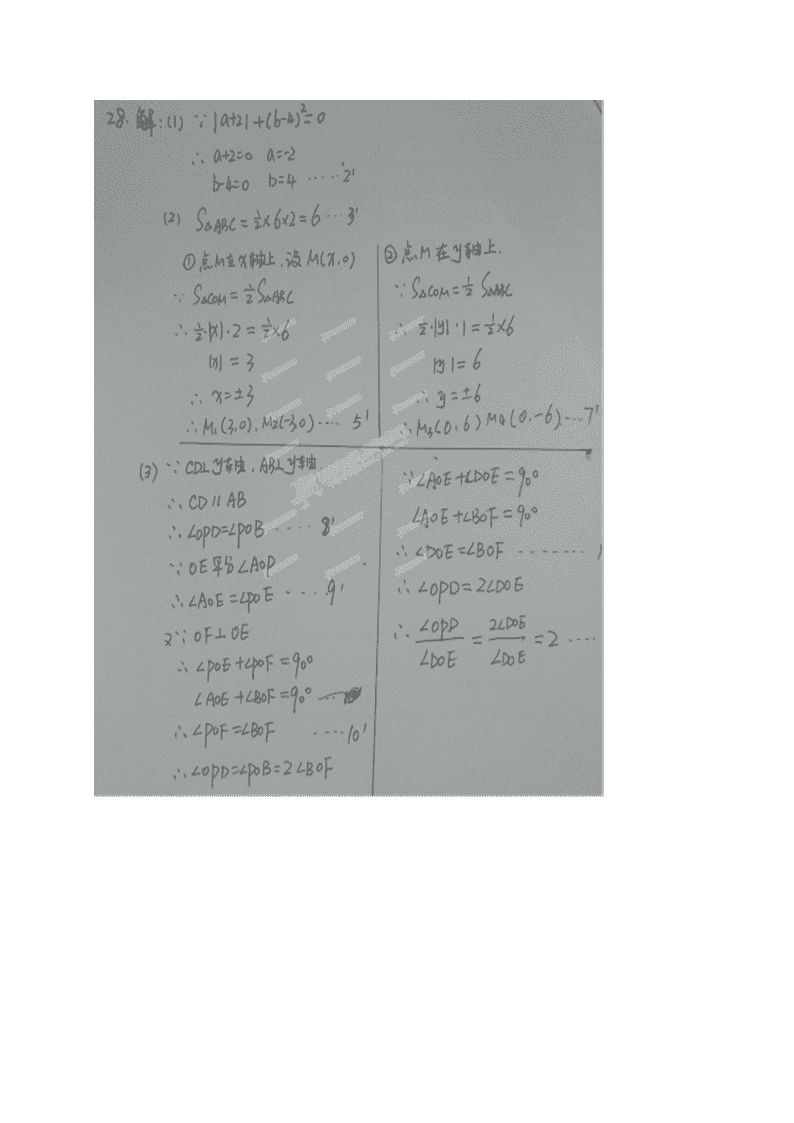 28. 解:(1) ∵ |a+2|+(b-4)²=0
∴ a+2=0 a=-2
b-4=0 b=4 ······2'
(2) S△ABC=½×6×2=6 ···3'
①点M在x轴上,设M(x,0)
∵ S△COM=½S△ABC
∴ ½·|x|·2=½×6
|x|=3
∴ x=±3
∴ M₁(3,0), M₂(-3,0)···· 5'
②点M在y轴上.
∵ S△COM=½ S△ABC
∴ ½·|y|·1=½×6
|y|=6
∴ y=±6
∴ M₃(0,6) M₄(0,-6)···7'
(3) ∵ CD⊥y轴,AB⊥y轴.
∴ CD∥AB
∴ ∠OPD=∠POB ···· 8'
∵ OE平分∠AOP
∴ ∠AOE=∠POE ···9'
又∵ OF⊥OE
∴ ∠POE+∠POF=90°
∠AOE+∠BOF=90°
∴ ∠POF=∠BOF ····10'
∴ ∠OPD=∠POB=2∠BOF
∵ ∠AOE+∠DOE=90°
∠AOE+∠BOF=90°
∴ ∠DOE=∠BOF ······· 1
∴ ∠OPD=2∠DOE
∴ ∠OPD/∠DOE=2∠DOE/∠DOE=2 ····